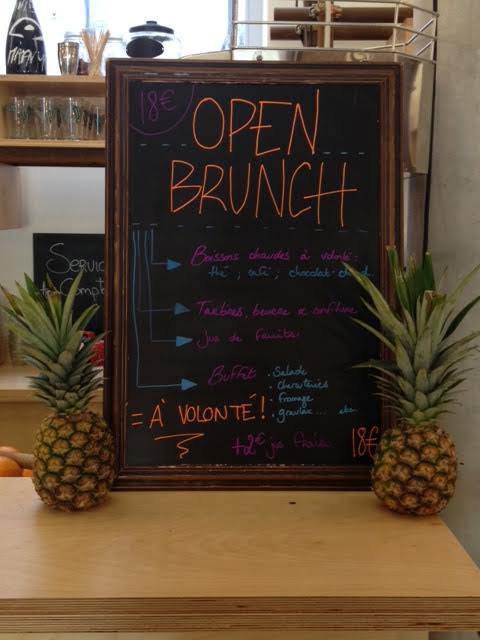 18€
OPEN
BRUNCH
Boissons chaudes à volonté :
thé, café, chocolat chaud
Tartines, beurre & confiture
Jus de fruits
Buffet
. Salade
. charcuteries
. fromage
. gravlax ... etc
= À VOLONTÉ !
+2€ jus frais
18€
SERVIC